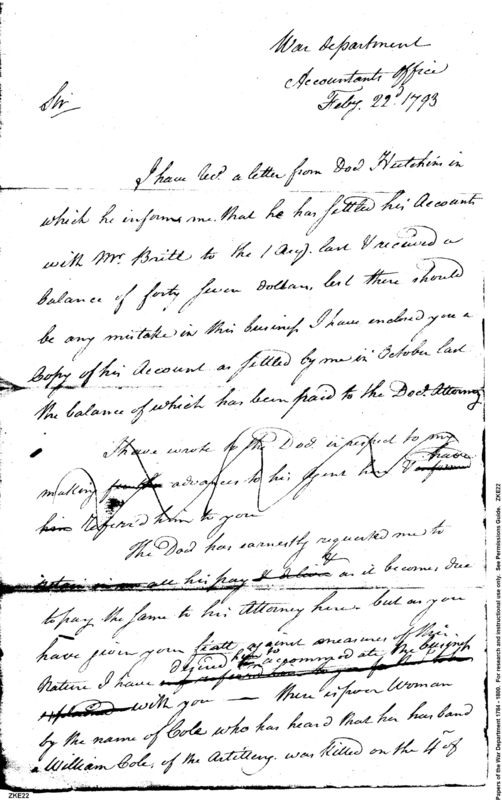 War department
Accountants Office
Feby. 22d. 1793
Sir
I have recd. a letter from Doct. Hutchins in
which he informs me that he has settled his Accounts
with Mr. Britt to the 1 Augt. last & received a
balance of forty seven dollars, lest there should
be any mistake in this business I have enclosed you a
Copy of his Account as settled by me in October last
the balance of which has been paid to the Doct. Attorney
I have wrote to the Doct. in respect to my
making advances to his Agent here & have
him referred him to you
The Doct. has earnestly requested me to
all his pay as it becomes due
to pay the same to his Attorney here but as you
have given your against measures of this
Nature I have desired him to accommodate the business
with you — there is poor Woman
by the name of Cole who has heard that her husband
a William Cole, of the Artillery was killed on the 4th of
ZKE22
Papers of the War Department 1784 - 1800. For research and instructional use only. See Permissions Guide. ZKE22